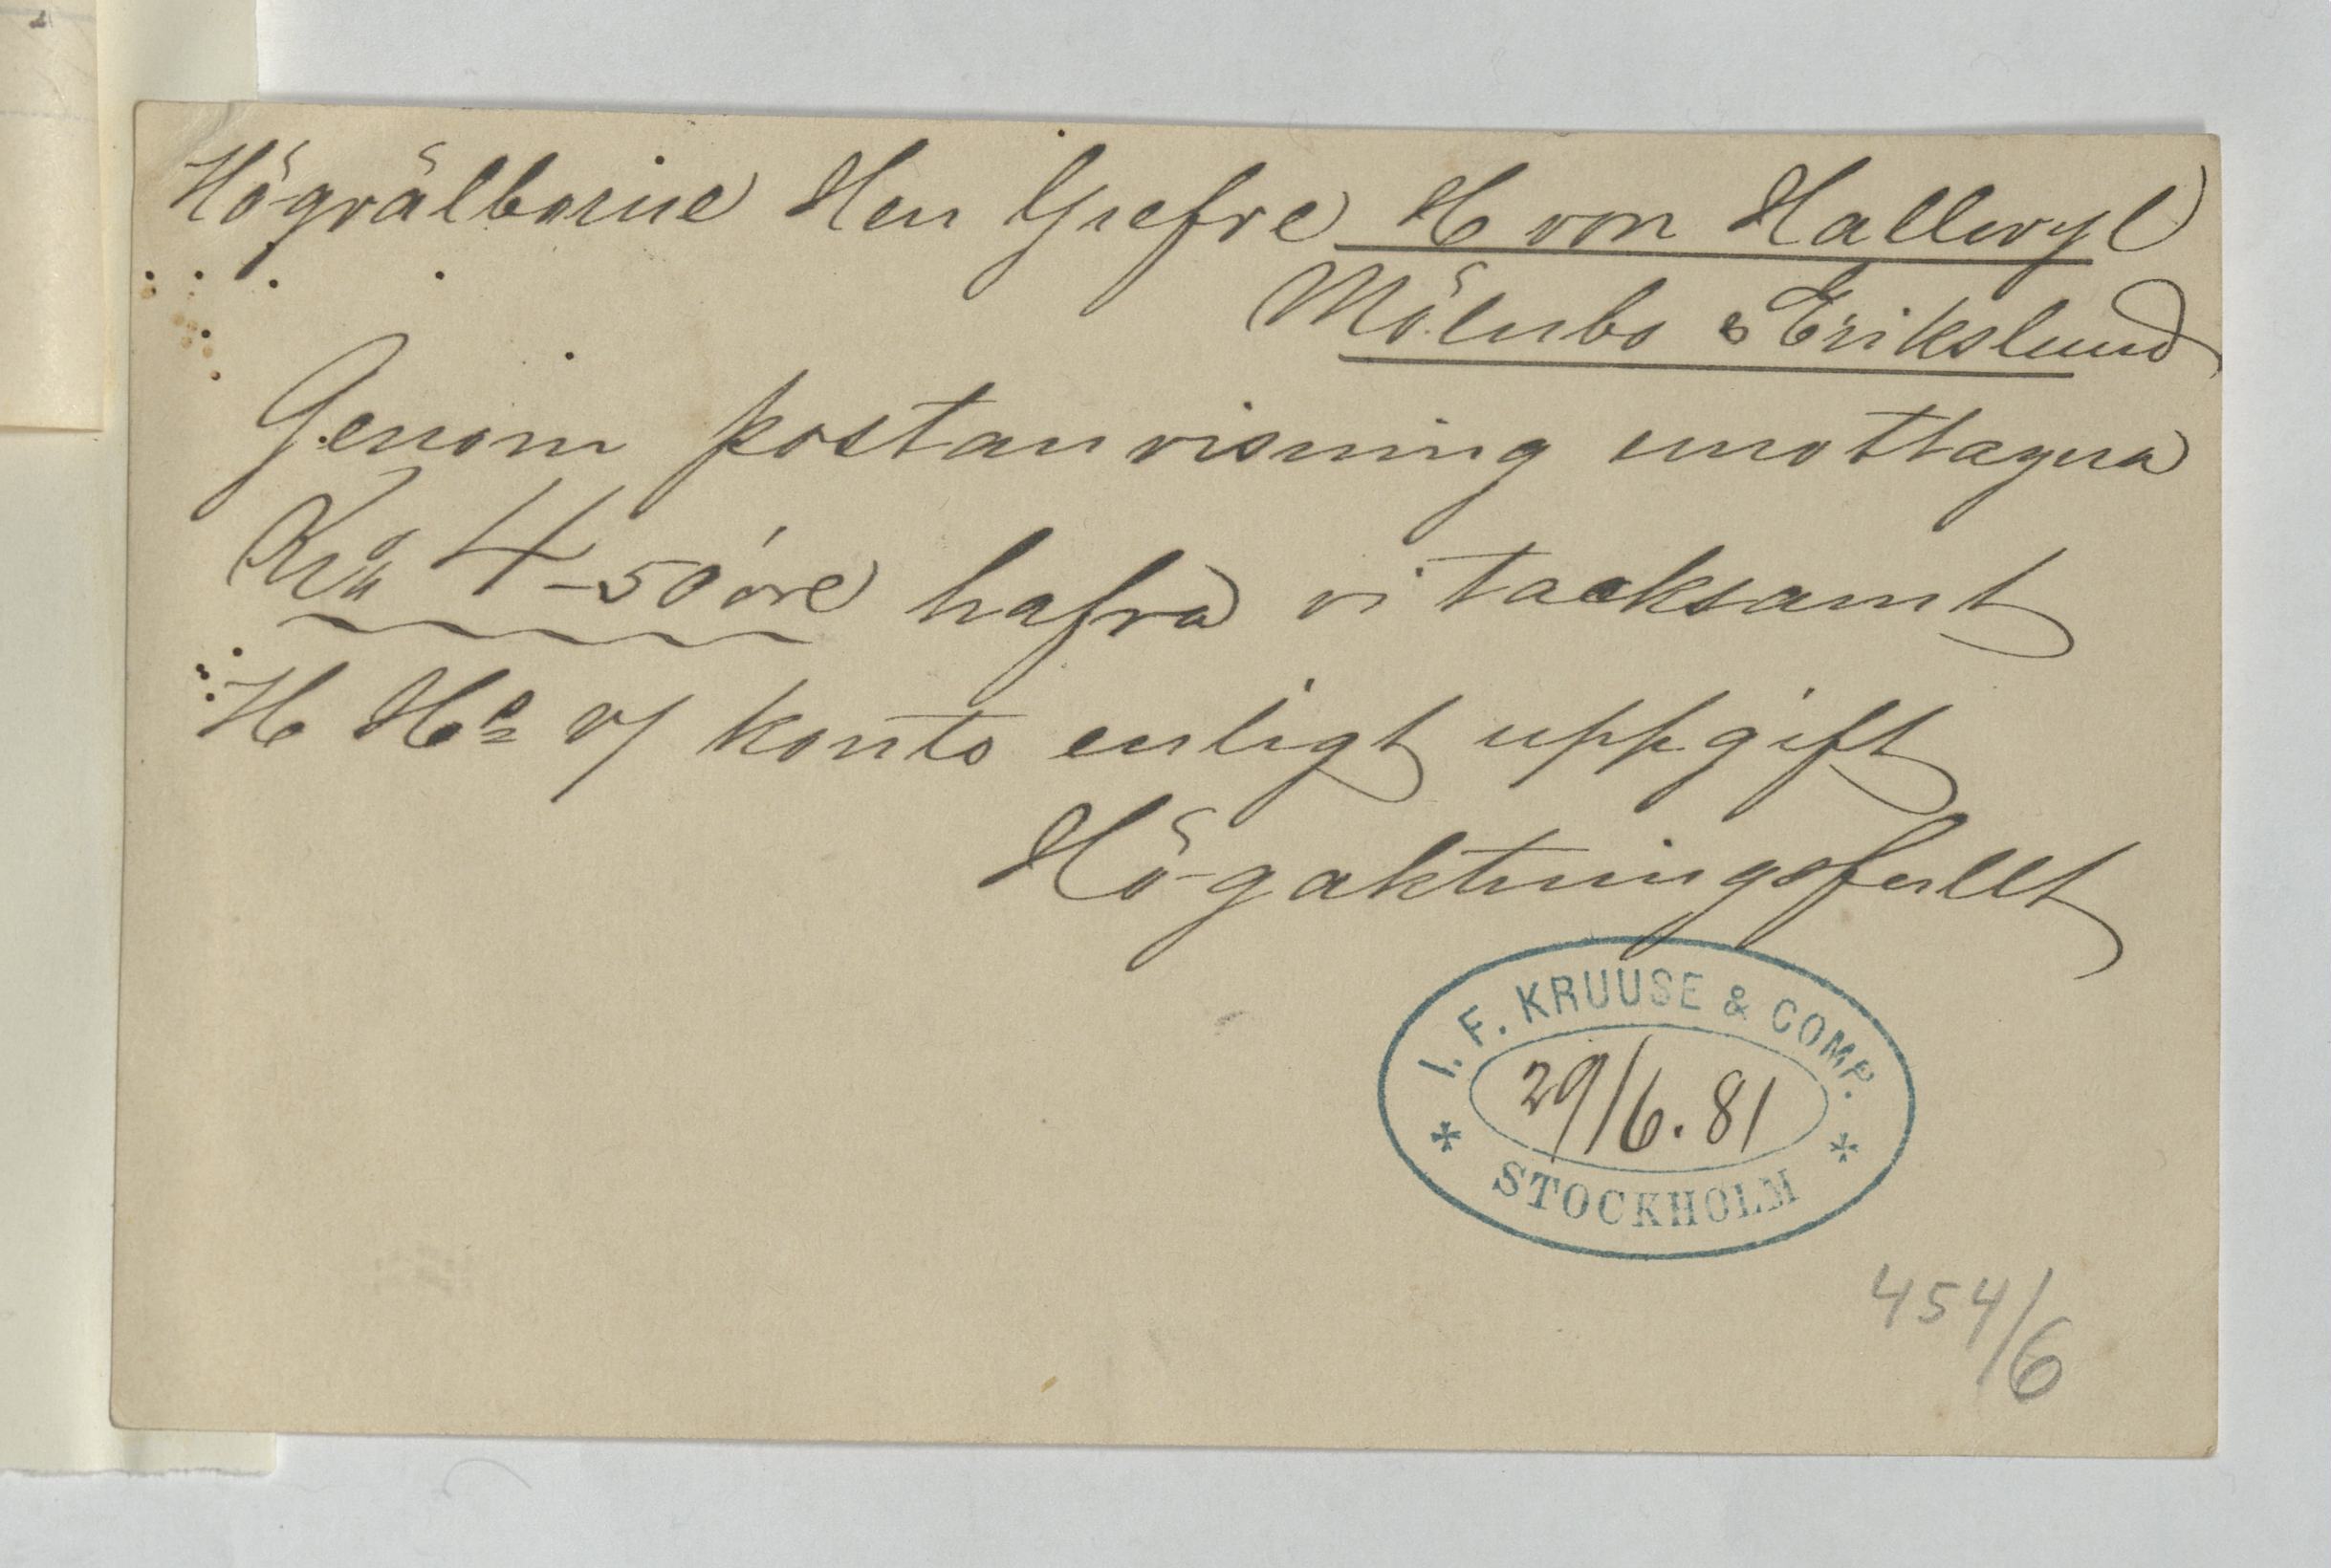 Högvälborne Herr Grefve H von Hallwyl
Mölnbo & Erikslund
Genom postanvisning emottagna
Kr 4-50 öre hafva vi tacksamt
H Hs o/ konto enligt uppgift
Högaktningsfullt
I. F. KRUUSE & COMP.
29/6.81
* STOCKHOLM *
454/6